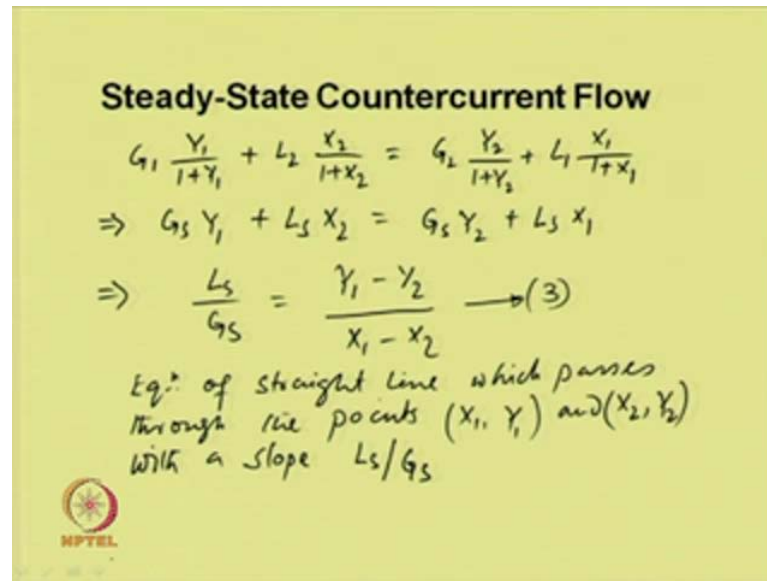 Steady-State Countercurrent Flow
G₁ Y₁/(1+Y₁) + L₂ X₂/(1+X₂) = G₂ Y₂/(1+Y₂) + L₁ X₁/(1+X₁)
⇒ Gs Y₁ + Ls X₂ = Gs Y₂ + Ls X₁
⇒ Ls/Gs = (Y₁ - Y₂)/(X₁ - X₂) → (3)
Eqn. of straight line which passes
through the points (X₁, Y₁) and (X₂, Y₂)
with a slope Ls/Gs
NPTEL